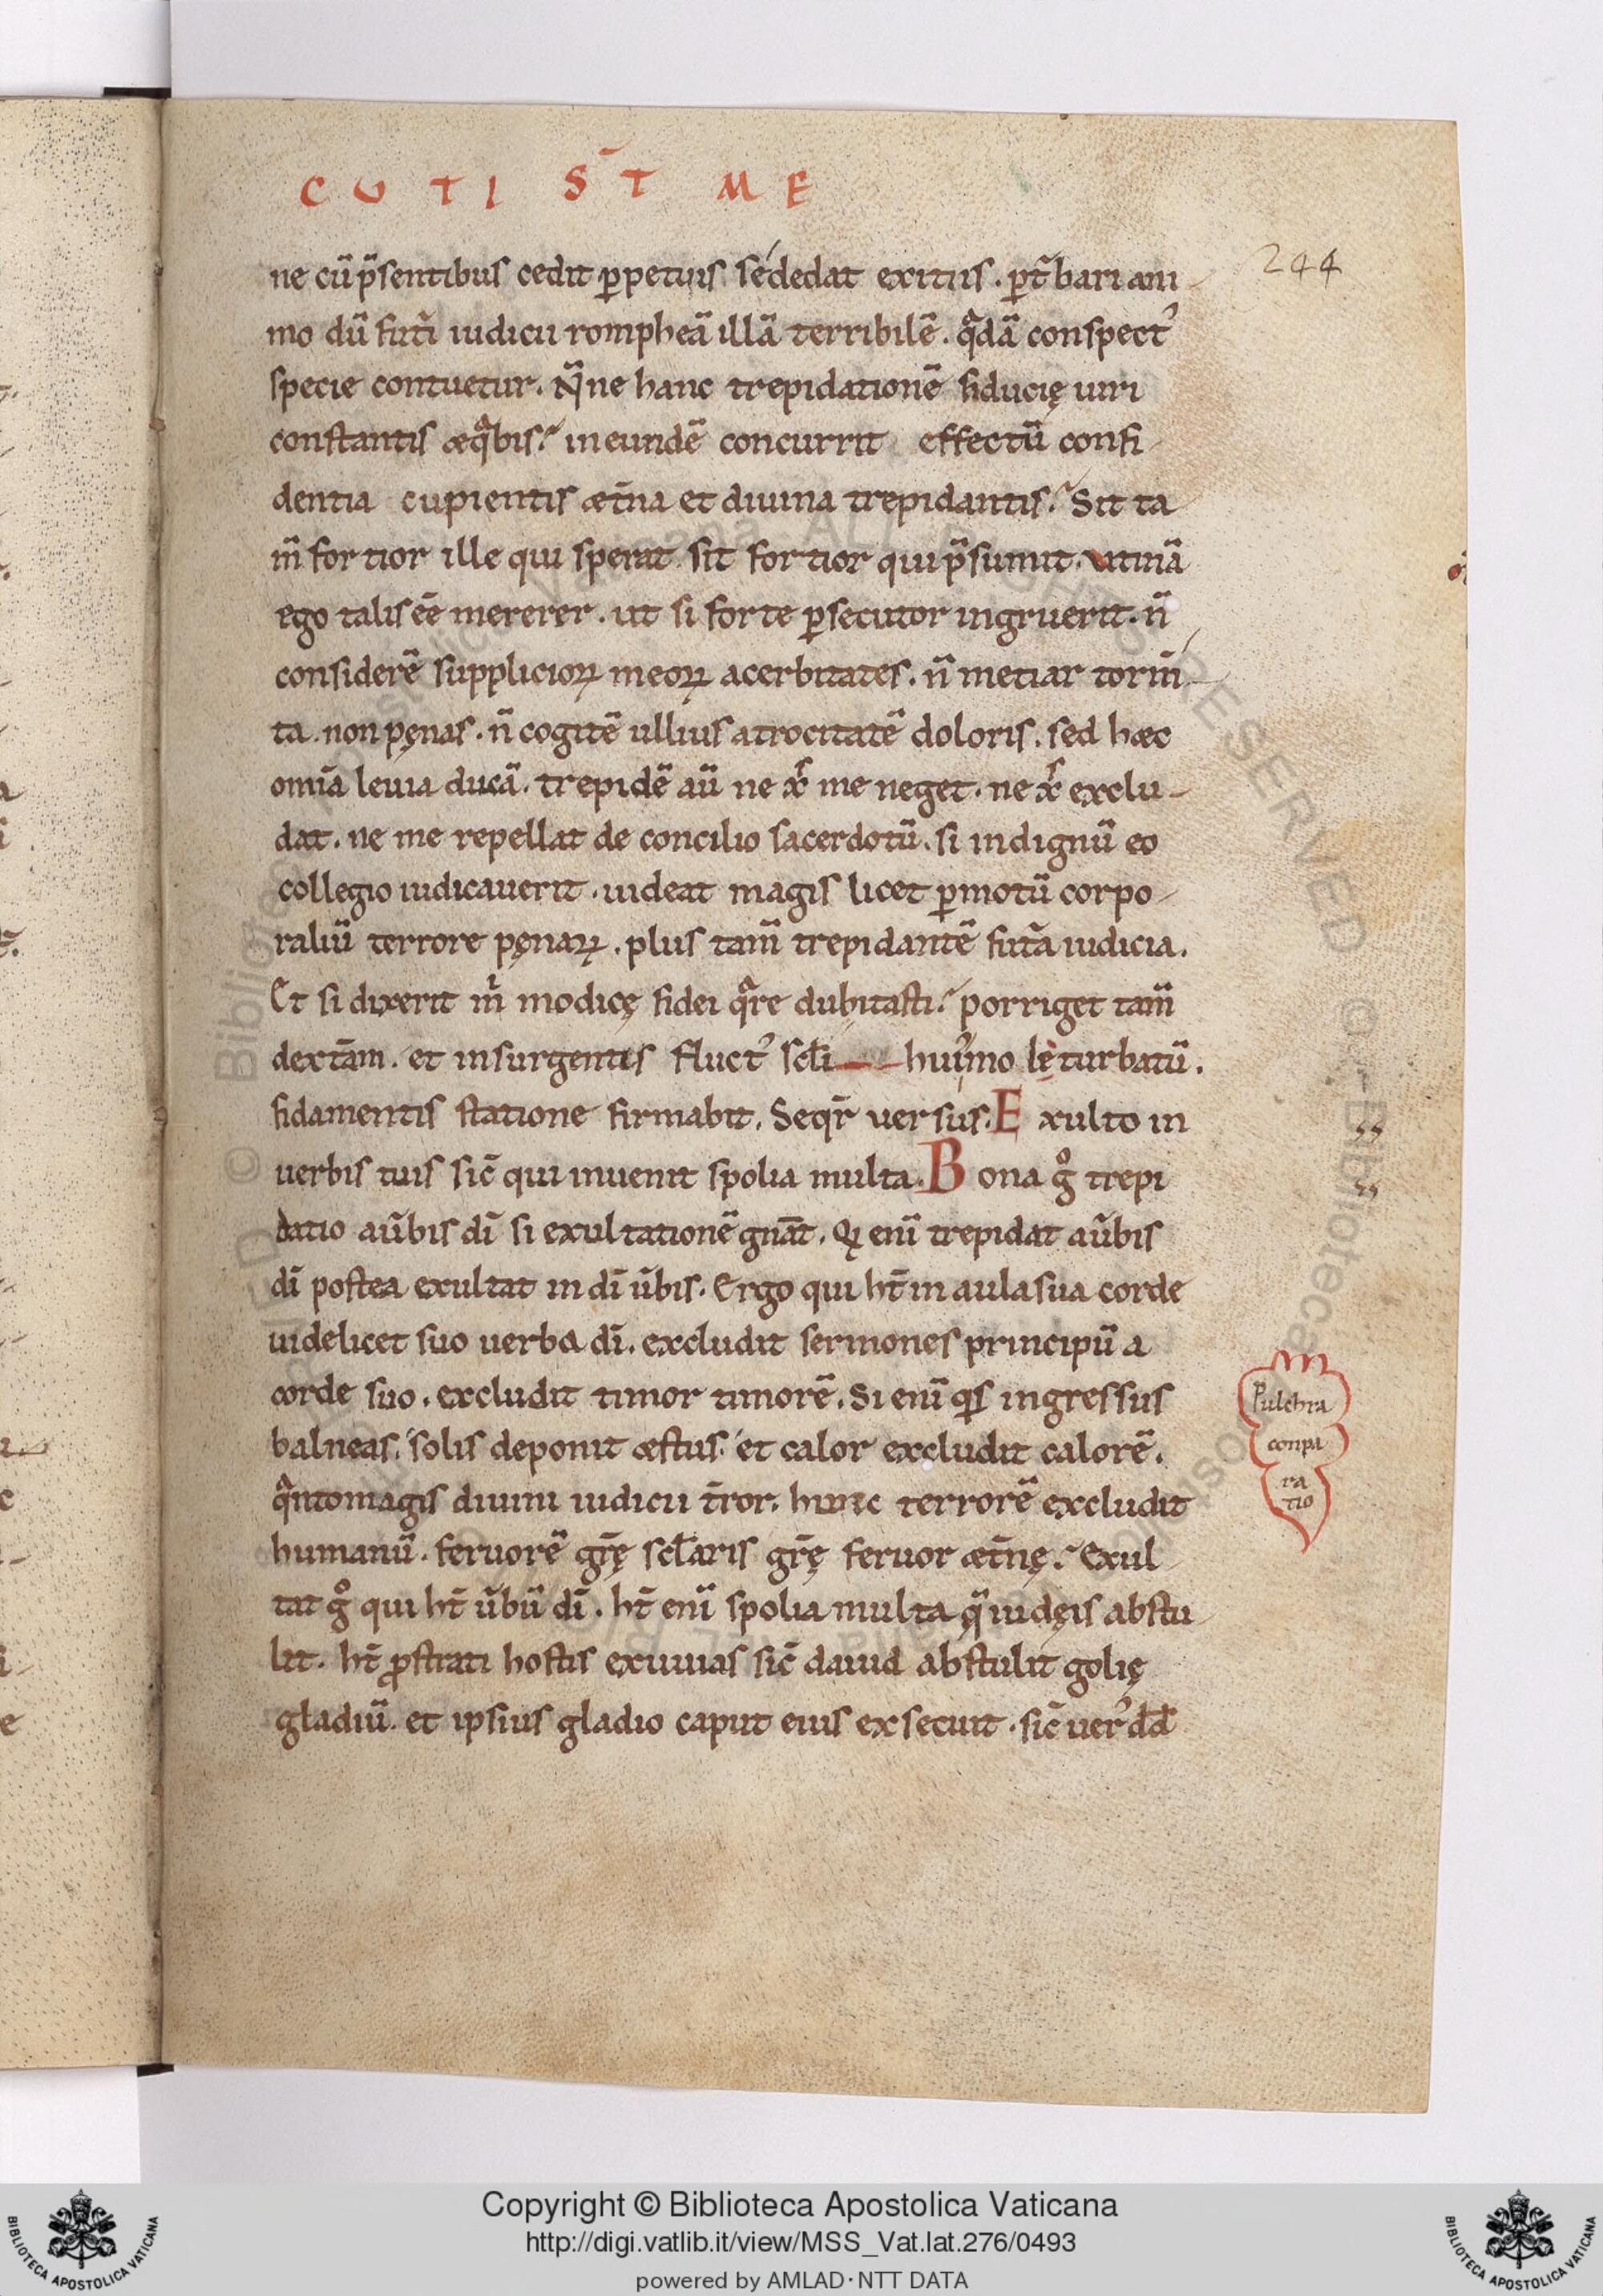 CUTI ST̄ ME
244
ne cū p̄sentibus cedit ꝑpetuis sé dedat exitiis . ꝑt̄bari ani-
mo dū fut̄i iudicii rompheā illā terribilē . qᵃdā conspectꝰ
specie contuetur . N̄ne hanc trepidationē fiducię uiri
constantis æqᵃbis? in eundē concurrit effectū confi-
dentia cupientis æt̄na et diuina trepidantis? Sit ta
m̄ fortior ille qui sperat sit fortior qui p̄sumit . utinā
ego talis eē mererer . ut si forte ꝑsecutor ingruerit . n̄
considerē supplicioꝝ meoꝝ acerbitates . n̄ metiar torm̄-
ta . non pęnas . n̄ cogitē ullius atrocitatē doloris . sed hæc
om̄ia leuia ducā . trepidē aū ne xp̄s me neget . ne xp̄s exclu-
dat . ne me repellat de concilio sacerdotū . si indignū eo
collegio iudicauerit . uideat magis licet ꝑmotū corpo-
raliū terrore pęnaꝝ . plus tam̄ trepidantē fut̄a iudicia .
Et si dixerit m̄ modicę fidei qᵃre dubitasti? porriget tam̄
dext̄am . et insurgentis fluctꝰ scl̄i huꝰmo leturbatū .
fidamentis statione firmabit . Seqr̄ uersus . Exulto in
uerbis tuis sic̄ qui inuenit spolia multa . Bona gͦ trepi
datio a ūbis dī si exultationē gnāt . Qi enī trepidat a ūbis
dī postea exultat in dī ūbis . Ergo qui ht̄ in aula sua corde
uidelicet suo uerba dī . excludit sermones principū a
corde suo . excludit timor timorē . Si enī qͥs ingressus
balneas . solis deponit æstus . et calor excludit calorē .
qᵃnto magis diuini iudicii t̄ror . hunc terrorē excludit
humanū . feruorē gr̄ę scl̄aris gr̄ę feruor æt̄nę . Exul-
tat gͦ qui ht̄ ūbū dī . ht̄ enī spolia multa q̄ iudęis abstu-
lit . ht̄ ꝓstrati hostis exuuias sic̄ dauid abstulit golię
gladiū . et ipsius gladio caput eius exsecuit . sic̄ uerꝰ dd̄
Pulchra
conpa
ra
tio
Copyright © Biblioteca Apostolica Vaticana
http://digi.vatlib.it/view/MSS_Vat.lat.276/0493
powered by AMLAD·NTT DATA
BIBLIOTECA APOSTOLICA VATICANA
BIBLIOTECA APOSTOLICA VATICANA